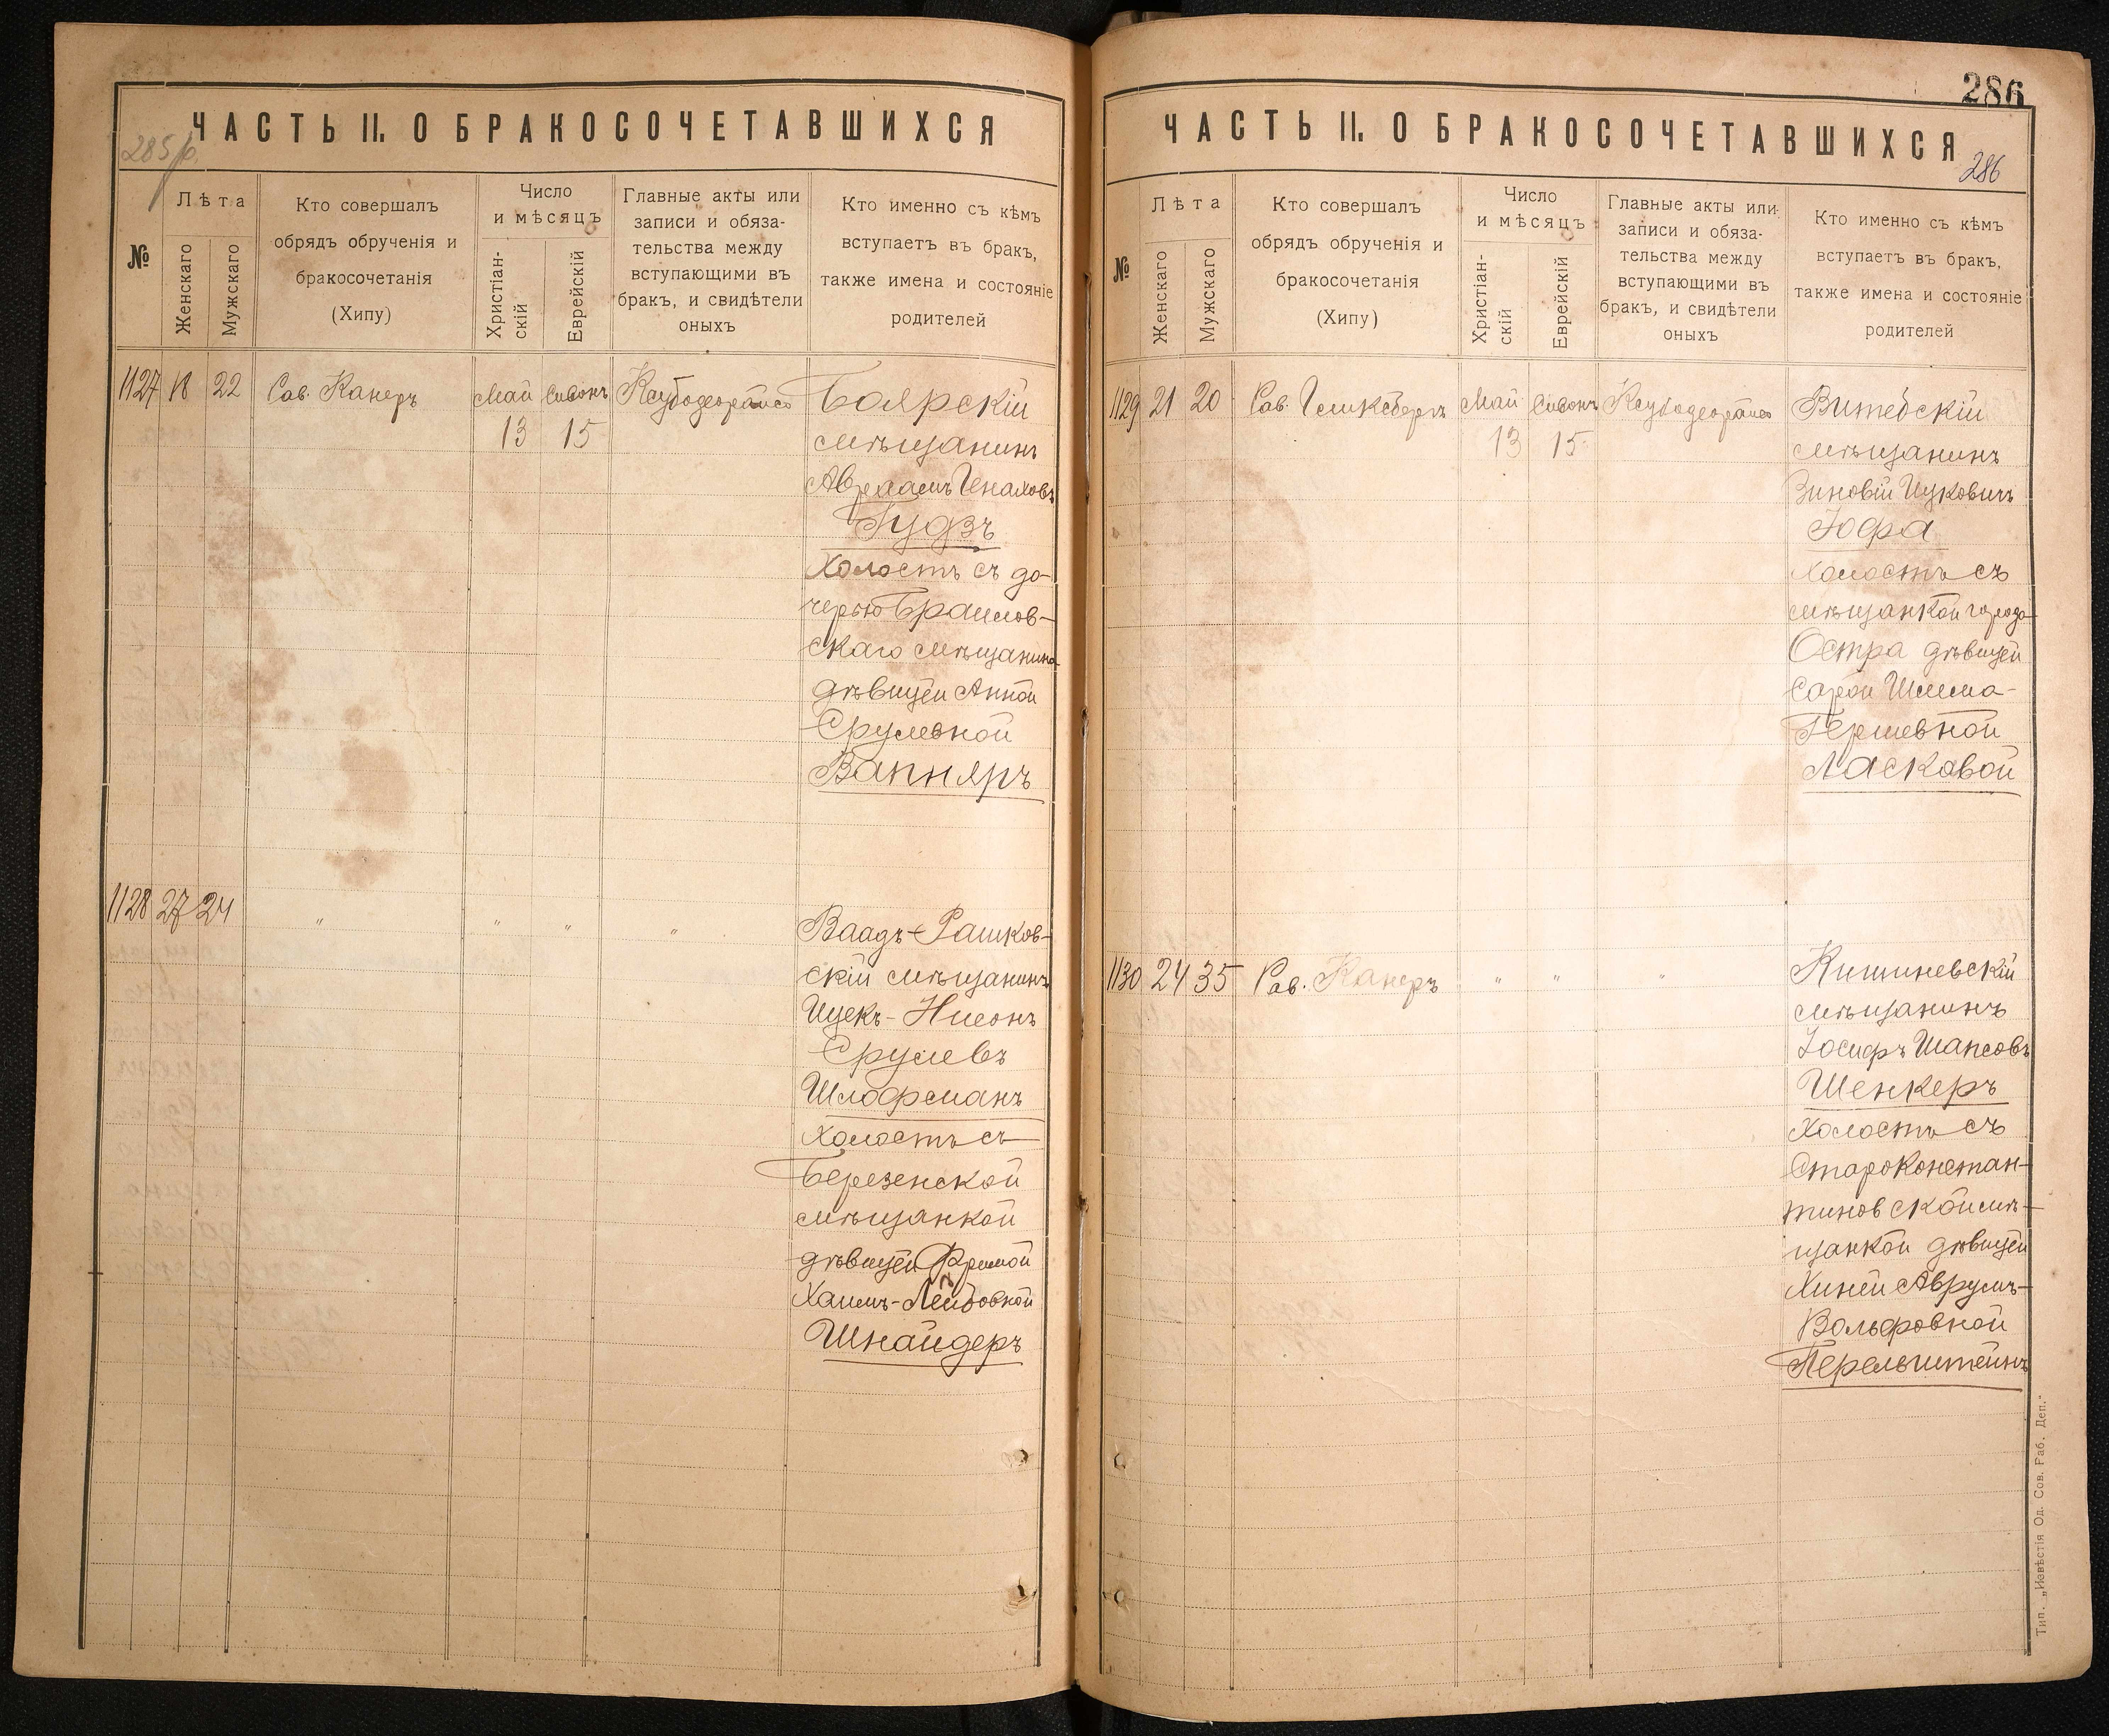 ЧАСТЬ II. О БРАКОСОЧЕТАВШИХСЯ
285
№
Лѣта
Женскаго
Мужскаго
Кто совершалъ
обрядъ обрученія и
бракосочетанія
(Хипу)
Число
и мѣсяцъ
Христіан-
скій
Еврейскій
Главные акты или
записи и обяза-
тельства между
вступающими въ
бракъ, и свидѣтели
оныхъ
Кто именно съ кѣмъ
вступаетъ въ бракъ,
также имена и состояніе
родителей
1127 18 22 Рав. Канеръ Май Сивонъ Боярскій
13 15 мѣщанинъ
Авраамъ Генаховъ
Гудзъ
Холостъ съ до-
черью Браилов-
скаго мѣщанина
дѣвицей Анной
Срулевной
Вапняръ
1128 27 24 " " " " Ваадъ-Рашков-
скій мѣщанинъ
Ицекъ-Нисонъ
Срулевъ
Шлофманъ
Холостъ съ
Березенской
мѣщанкой
дѣвицей Фримой
Хаимъ-Лейбовной
Шнайдеръ
286
ЧАСТЬ II. О БРАКОСОЧЕТАВШИХСЯ
286
№
Лѣта
Женскаго
Мужскаго
Кто совершалъ
обрядъ обрученія и
бракосочетанія
(Хипу)
Число
и мѣсяцъ
Христіан-
скій
Еврейскій
Главные акты или
записи и обяза-
тельства между
вступающими въ
бракъ, и свидѣтели
оныхъ
Кто именно съ кѣмъ
вступаетъ въ бракъ,
также имена и состояніе
родителей
1129 21 20 Рав. Май Сивонъ Витебскій
13 15 мѣщанинъ
Зиновій Ицковичъ
Іофа
Холостъ съ
мѣщанкой города
Остра дѣвицей
Сарой Шлема-
Гершевной
Ласковой
1130 24 35 Рав. Канеръ " " " Кишиневскій
мѣщанинъ
Іосифъ Шапсовъ
Шенкеръ
Холостъ съ
Староконстан-
тиновской мѣ-
щанкой дѣвицей
Хиней Аврумъ-
Вольфовной
Перельштейнъ
Тип. „Извѣстія Од. Сов. Раб. Деп."